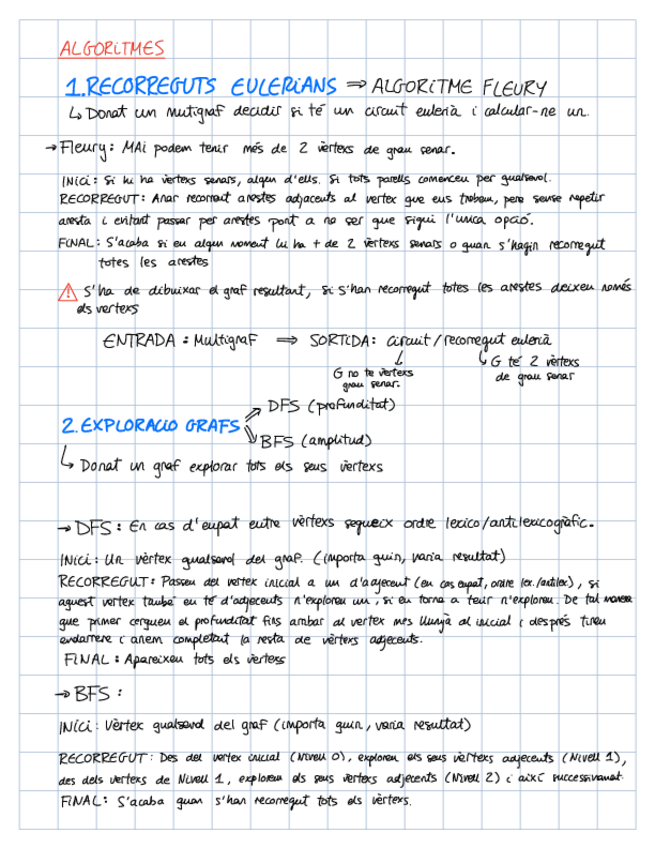 ALGORITMES
1. RECORREGUTS EULERIANS ⇒ ALGORITME FLEURY
↳ Donat un mutigraf decidir si té un circuit eulerià i calcular-ne un.
→ Fleury: MAi podem tenir més de 2 vèrtexs de grau senar.
INICI: Si hi ha vèrtexs senars, algun d'ells. Si tots parells comenceu per qualsevol.
RECORREGUT: Anar recorrent arestes adjacents al vertex que ens trobem, però sense repetir
aresta i evitant passar per arestes pont a no ser que sigui l'unica opció.
FINAL: S'acaba si en algun moment hi ha + de 2 vèrtexs senars o quan s'hagin recorregut
totes les arestes
⚠ S'ha de dibuixar el graf resultant, si s'han recorregut totes les arestes deixeu només
els vertexs
ENTRADA: Multigraf ⇒ SORTIDA: circuit/recorregut eulerià
G no te vèrtexs
grau senar.
G té 2 vèrtexs
de grau senar
DFS (profunditat)
2. EXPLORACIO GRAFS
BFS (amplitud)
↳ Donat un graf explorar tots els seus vèrtexs
→ DFS: En cas d'empat entre vèrtexs segueix ordre lexico/antilexicogràfic.
INICI: Un vèrtex qualsevol del graf. (importa quin, varia resultat)
RECORREGUT: Passem del vertex inicial a un d'adjecent (en cas empat, ordre lex./antilex), si
aquest vertex també en té d'adjecents n'explorem un, si en torna a tenir n'explorem. De tal manera
que primer cerquem el profunditat fins arribar al vertex més llunyà al inicial i després tirem
endarrere i anem completant la resta de vèrtexs adjecents.
FINAL: Apareixen tots els vèrtexs
→ BFS:
INICI: Vèrtex qualsevol del graf (importa quin, varia resultat)
RECORREGUT: Des del vertex inicial (Nivell 0), explorem els seus vèrtexs adjecents (Nivell 1),
des dels vertexs de Nivell 1, explorem els seus vertexs adjecents (Nivell 2) i així successivament.
FINAL: S'acaba quan s'han recorregut tots els vèrtexs.